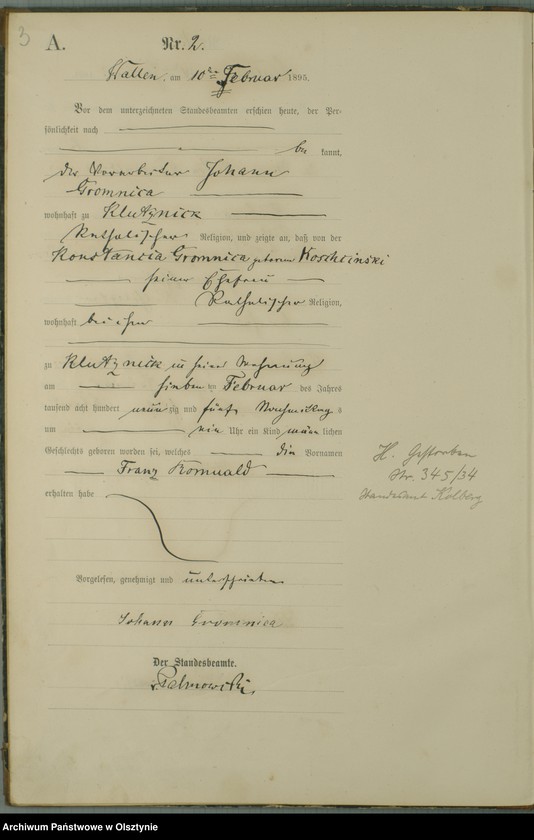 3
A.
Nr. 2.
Wallen am 10ten Februar 1895.
Vor dem unterzeichneten Standesbeamten erschien heute, der Per-
sönlichkeit nach
be kannt,
der Vorarbeiter Johann
Gromnica
wohnhaft zu Klutznick
Katholischer Religion, und zeigte an, daß von der
Konstancia Gromnica geborene Koschcinski
seiner Ehefrau
Katholischer Religion,
wohnhaft bei ihm
zu Klutznick in seiner Wohnung
am sieben ten Februar des Jahres
tausend acht hundert neun zig und fünf Nachmittag s
um ein Uhr ein Kind männ lichen
Geschlechts geboren worden sei, welches die Vornamen
Franz Romuald
erhalten habe
Vorgelesen, genehmigt und unterschrieben
Johann Gromnica
Der Standesbeamte.
H. Gestorben
Nr. 345/34
Standesamt Kolberg
Archiwum Państwowe w Olsztynie